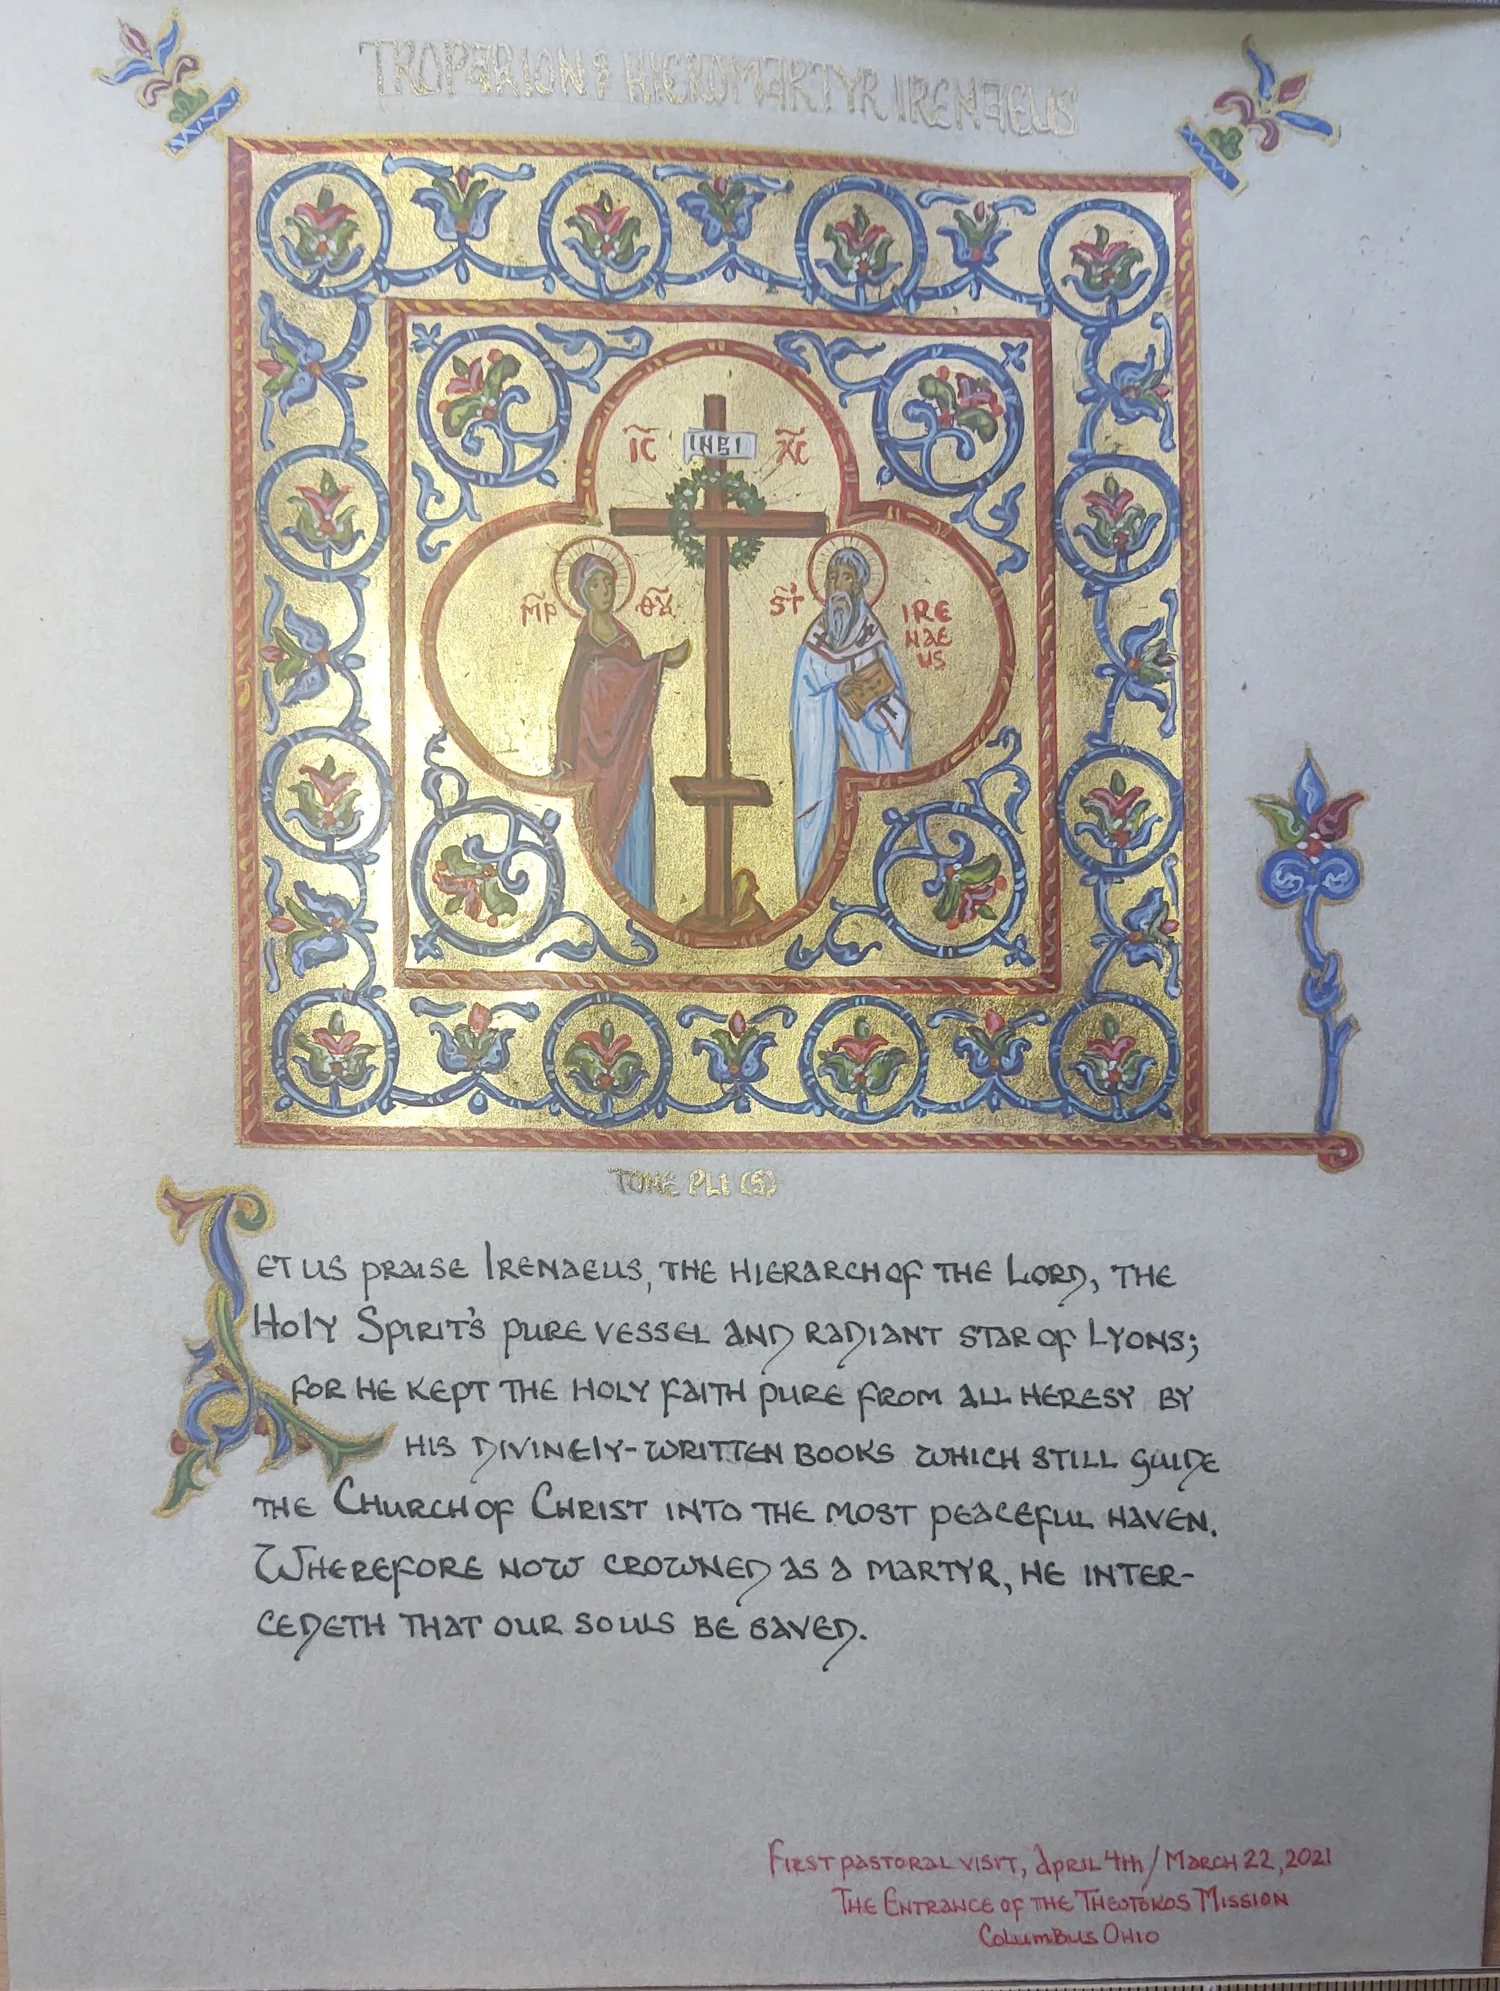 TROPARION: HIEROMARTYR IRENAEUS
I͠C INBI X͠C
M͠P Θ͠Y ST IRE
NAE
US
TONE PL1 (5)
LET US PRAISE IRENAEUS, THE HIERARCH OF THE LORD, THE
HOLY SPIRIT'S PURE VESSEL AND RADIANT STAR OF LYONS;
FOR HE KEPT THE HOLY FAITH PURE FROM ALL HERESY BY
HIS DIVINELY-WRITTEN BOOKS WHICH STILL GUIDE
THE CHURCH OF CHRIST INTO THE MOST PEACEFUL HAVEN.
WHEREFORE NOW CROWNED AS A MARTYR, HE INTER-
CEDETH THAT OUR SOULS BE SAVED.
FIRST PASTORAL VISIT, APRIL 4TH / MARCH 22, 2021
THE ENTRANCE OF THE THEOTOKOS MISSION
COLUMBUS OHIO